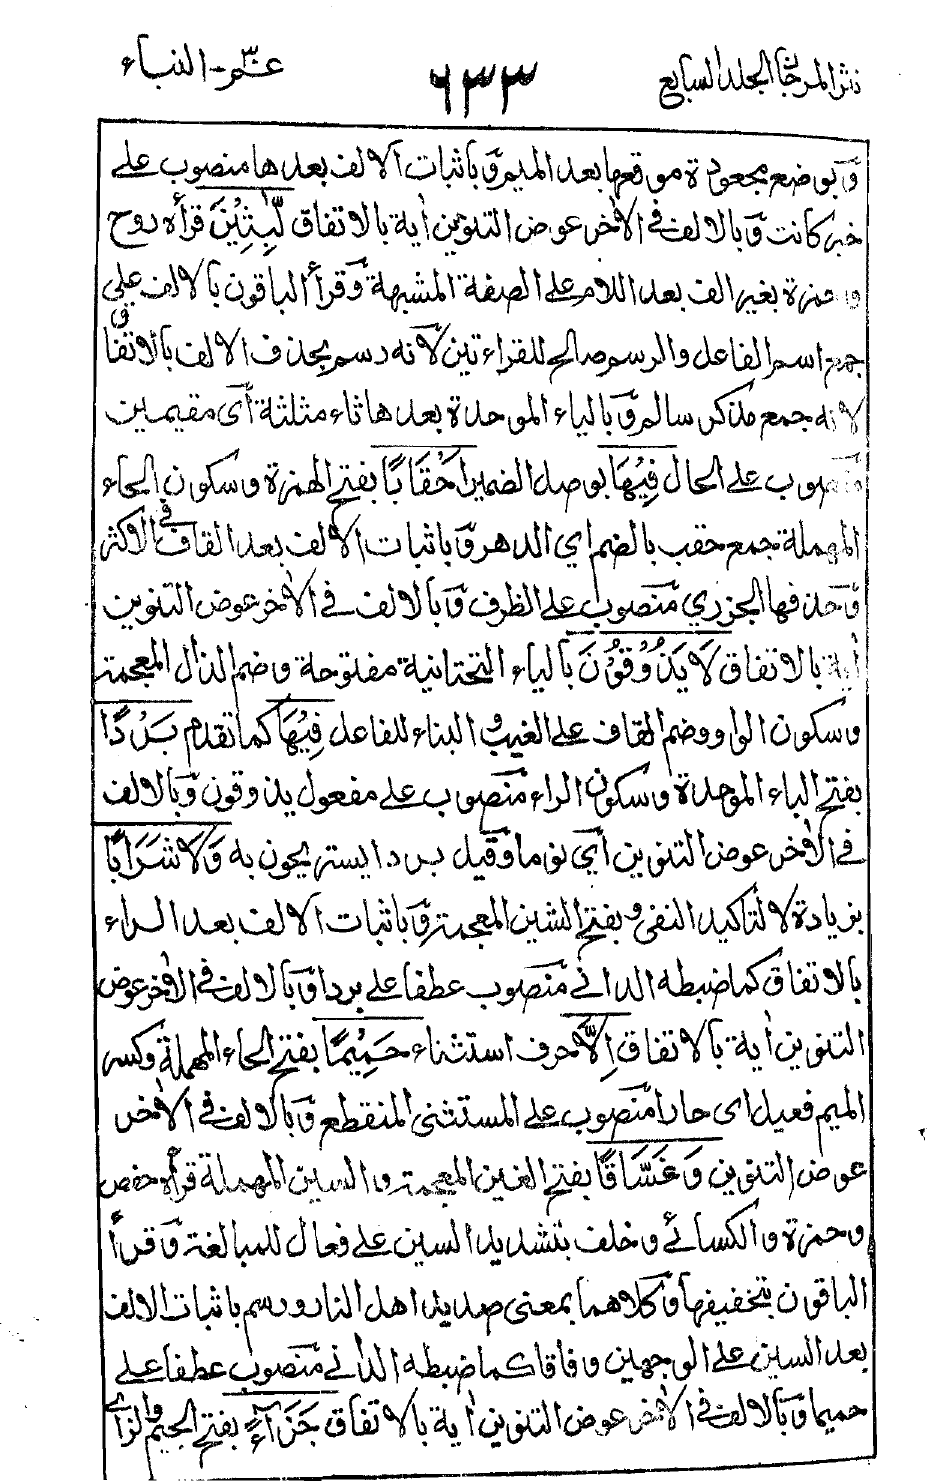 نثر المرجان الجلد السابع ٦٣٣ عمّ - النباء
وَبوضع مجعودة موقعها بعد الميم وَباثبات الالف بعدها منصوب على
خبر كانت وَبالالف في الاٰخر عوض التنوين اٰية بالاتفاق لّٰبِثِيْنَ قرأه روح
وحمزة بغير الف بعد اللام على الصفة المشبهة وَقرأ الباقون بالالف على
جمع اسم الفاعل والرسم صالح للقراءتين لانه رسم بحذف الالف بالاتفاق و
لانه جمع مذكر سالم وَبالباء الموحدة بعدها ثاء مثلثة أي مقيمين
منصوب على الحال فِيْهَا بوصل الضمير اَحْقَابًا بفتح الهمزة وسكون الحاء
المهملة جمع حقب بالضم اي الدهر وَباثبات الالف بعد القاف في الاكثر
وَحذفها الجزري منصوب على الظرف وَبالالف في الاٰخر عوض التنوين
اٰية بالاتفاق لَا يَذُوْقُوْنَ بالياء التحتانية مفتوحة وضم الذال المعجمة
وسكون الواو وضم القاف على الغيب و البناء للفاعل فِيْهَا كما تقدم بَرْدًا
بفتح الباء الموحدة وسكون الراء منصوب على مفعول يذوقون وَبالالف
في الاٰخر عوض التنوين أي نوما وَقيل بردا يستريحون به وَلَا شَرَابًا
بزيادة لا لتاكيد النفى وبفتح الشين المعجمة وَباثبات الالف بعد الراء
بالاتفاق كما ضبطه الداني منصوب عطفا على بردا وَبالالف في الاٰخر عوض
التنوين اٰية بالاتفاق اِلَّا حرف استثناء حَمِيْمًا بفتح الحاء المهملة وكسر
الميم فعيل اى حارا منصوب على المستثنى المنقطع وَبالالف في الاٰخر
عوض التنوين وَغَسَّاقًا بفتح الغين المعجمة والسين المهملة قرأه حفص
وحمزة والكسائي وخلف بتشديد السين على فعال للمبالغة وَقرأ
الباقون بتخفيفها وَكلاهما بمعنى صديد اهل النار ورسم باثبات الالف
بعد السين على الوجهين وفاقا كما ضبطه الداني منصوب عطفا على
حميما وَبالالف في الاٰخر عوض التنوين اٰية بالاتفاق جَزَآءً بفتح الجيم والزاي